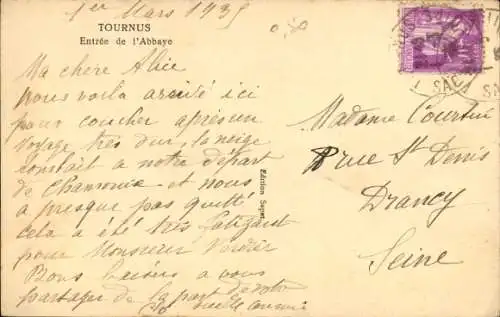 1er Mars 1935
TOURNUS
Entrée de l'Abbaye
Ma chère Alice
nous voila arrivé ici
pour coucher après un
voyage très dur, la neige
tombait a notre départ
de Chamonix et nous
a presque pas quitté
cela a été très fatigant
pour Monsieur Verdier
Bons baisers a vous
partager de la part de votre
vieille amie
Edition Sapet
Madame Courtin
rue St Denis
Drancy
Seine